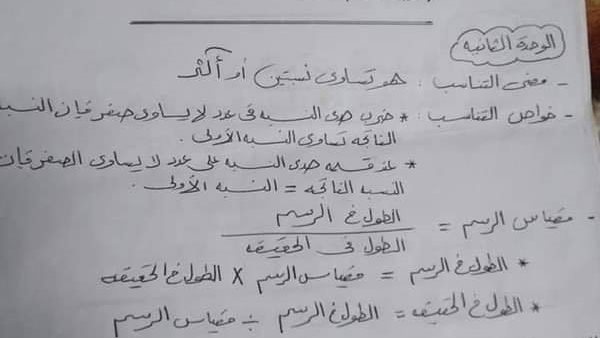 الوحدة الثانيه
- معنى التناسب : هو تساوى نسبتين أو أكثر
- خواص التناسب : * ضرب حدى النسبه فى عدد لا يساوى صفر فإن النسبه
الناتجه تساوى النسبه الأولى .
* عند قسمه حدى النسبه على عدد لا يساوى الصفر فإن
النسبه الناتجه = النسبه الأولى .
- مقياس الرسم = الطول فى الرسم
الطول فى الحقيقه
* الطول فى الرسم = مقياس الرسم × الطول فى الحقيقه
* الطول فى الحقيقه = الطول فى الرسم ÷ مقياس الرسم